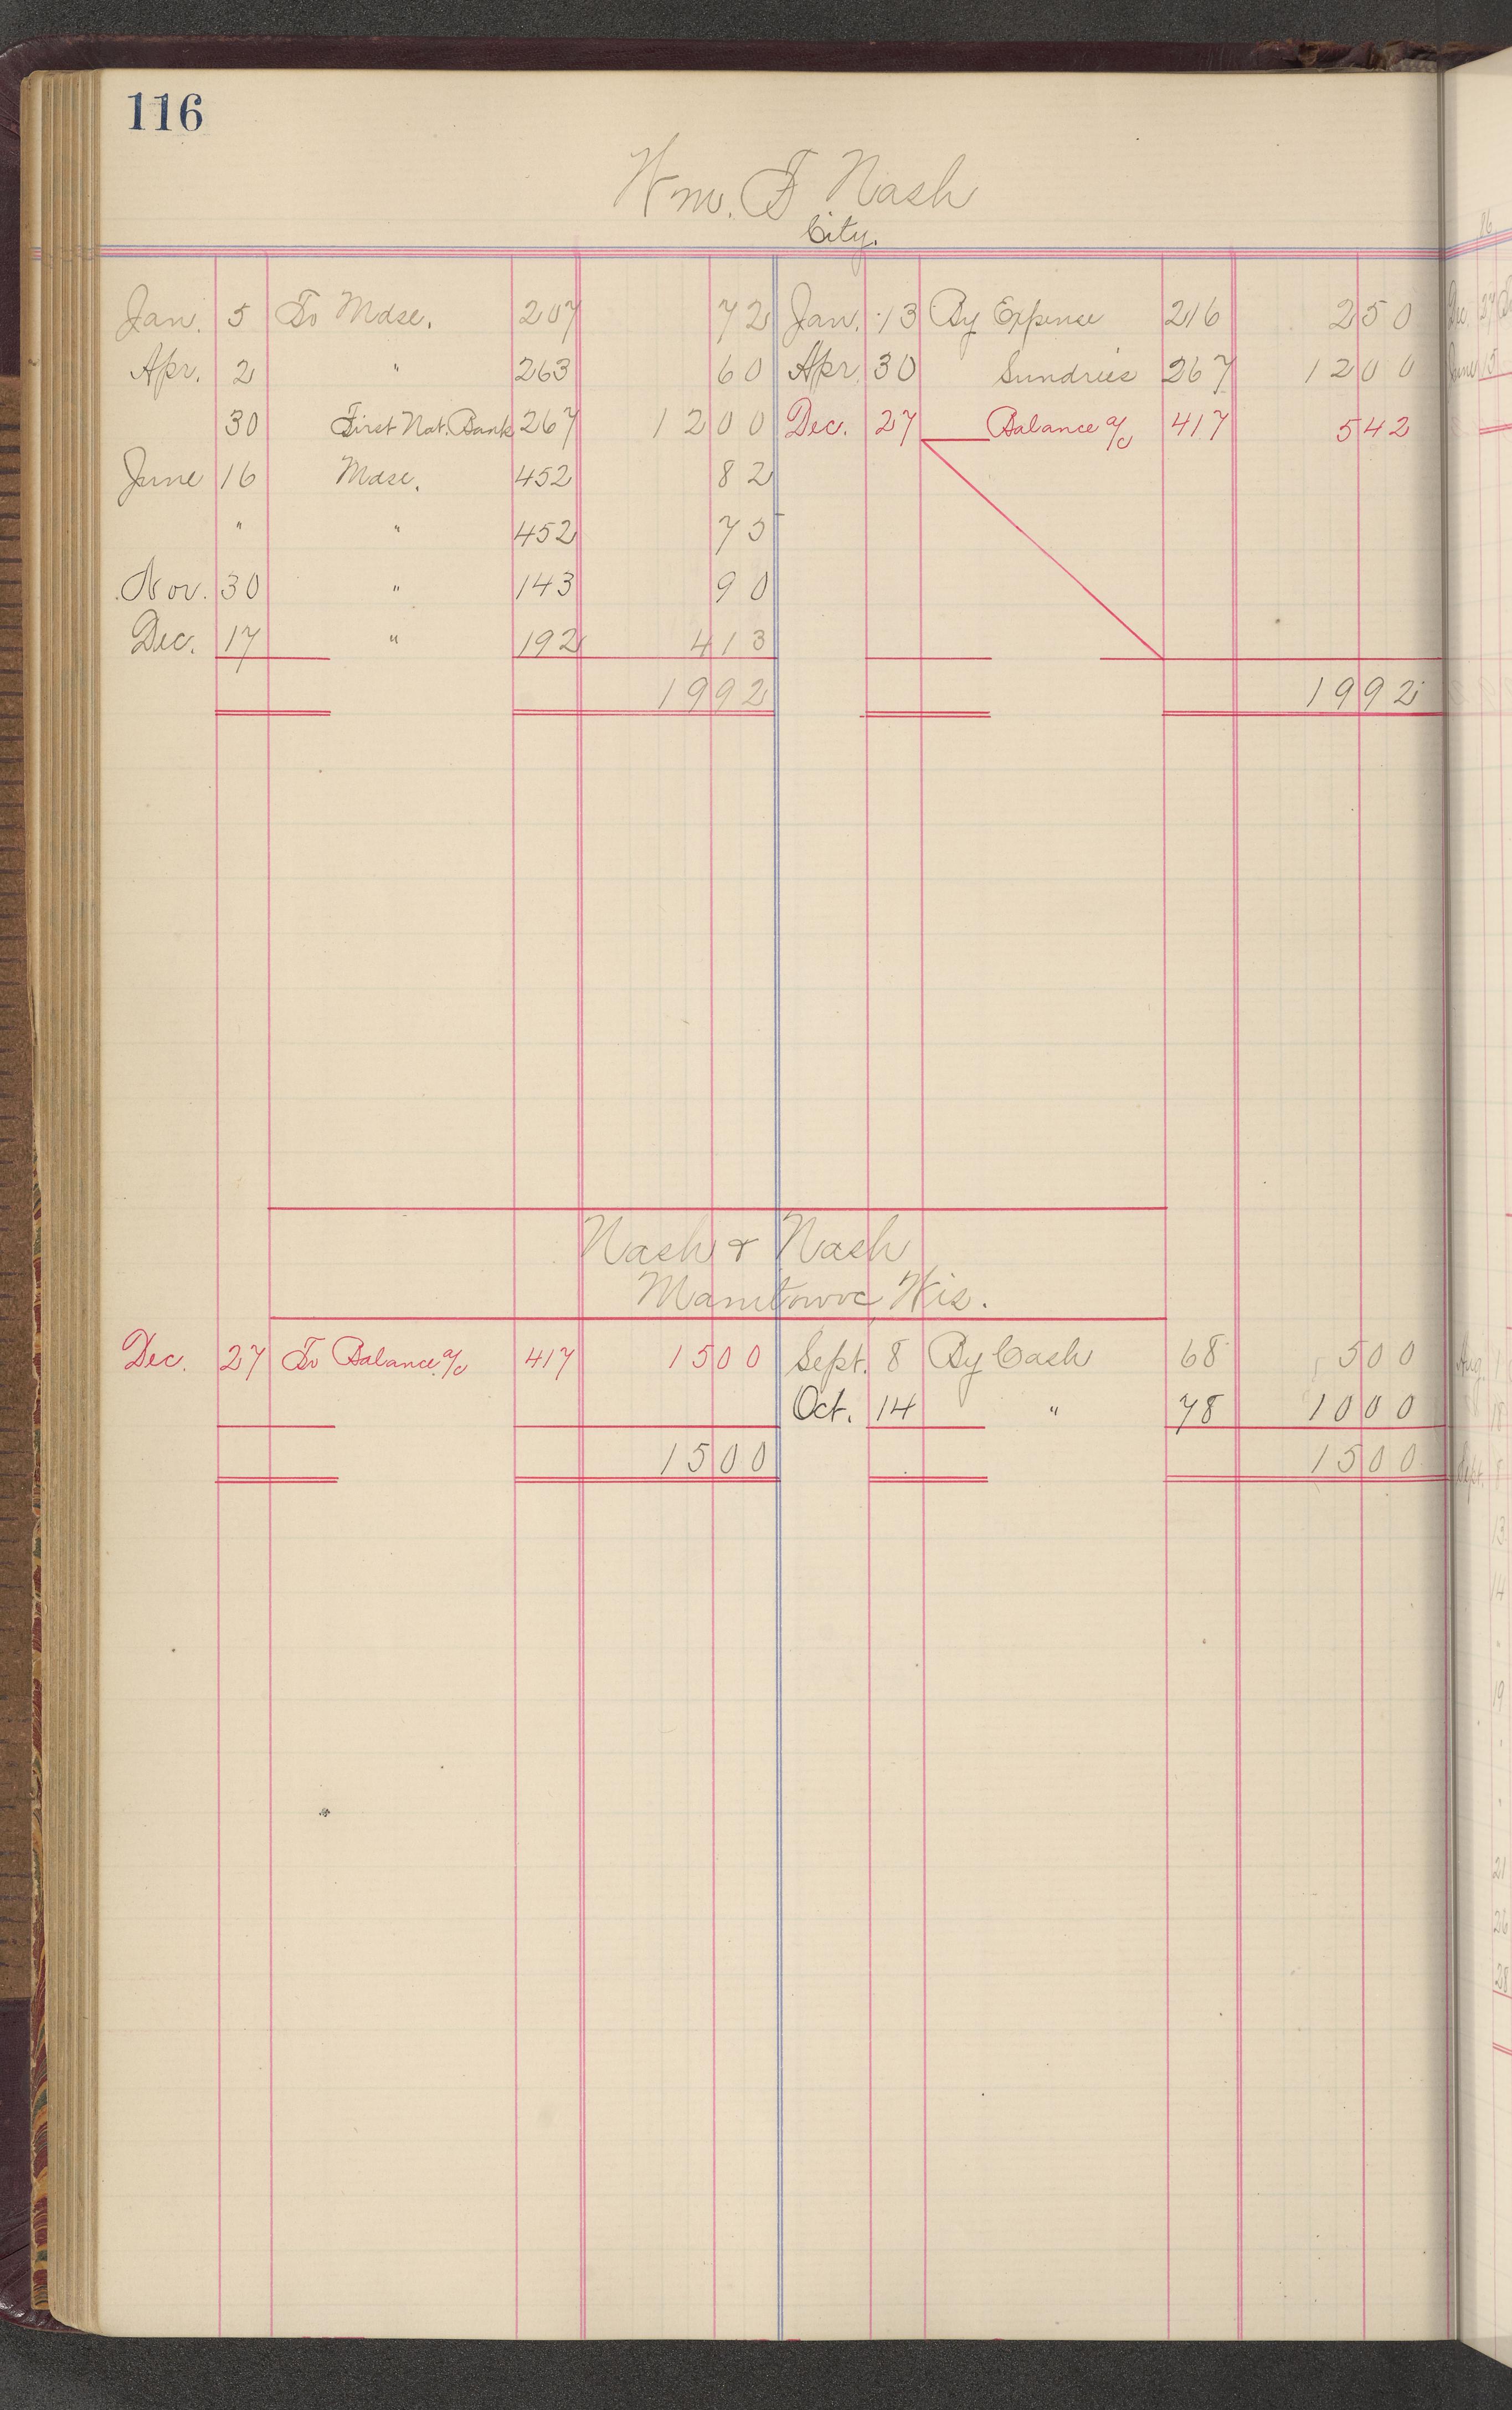 116
Wm. F Nash
City.
Jan. 5 To Mdse. 207 72 Jan. 13 By Expense 216 250
Apr. 2 " 263 60 Apr. 30 Sundries 267 1200
30 First Nat. Bank 267 1200 Dec. 27 Balance a/c 417 542
June 16 Mdse. 452 82
" " 452 75
Nov. 30 " 143 90
Dec. 17 " 192 413
1992 1992
Nash & Nash
Manitowoc, Wis.
Dec. 27 To Balance a/c 417 1500 Sept. 8 By Cash 68 500
Oct. 14 " 78 1000
1500 1500